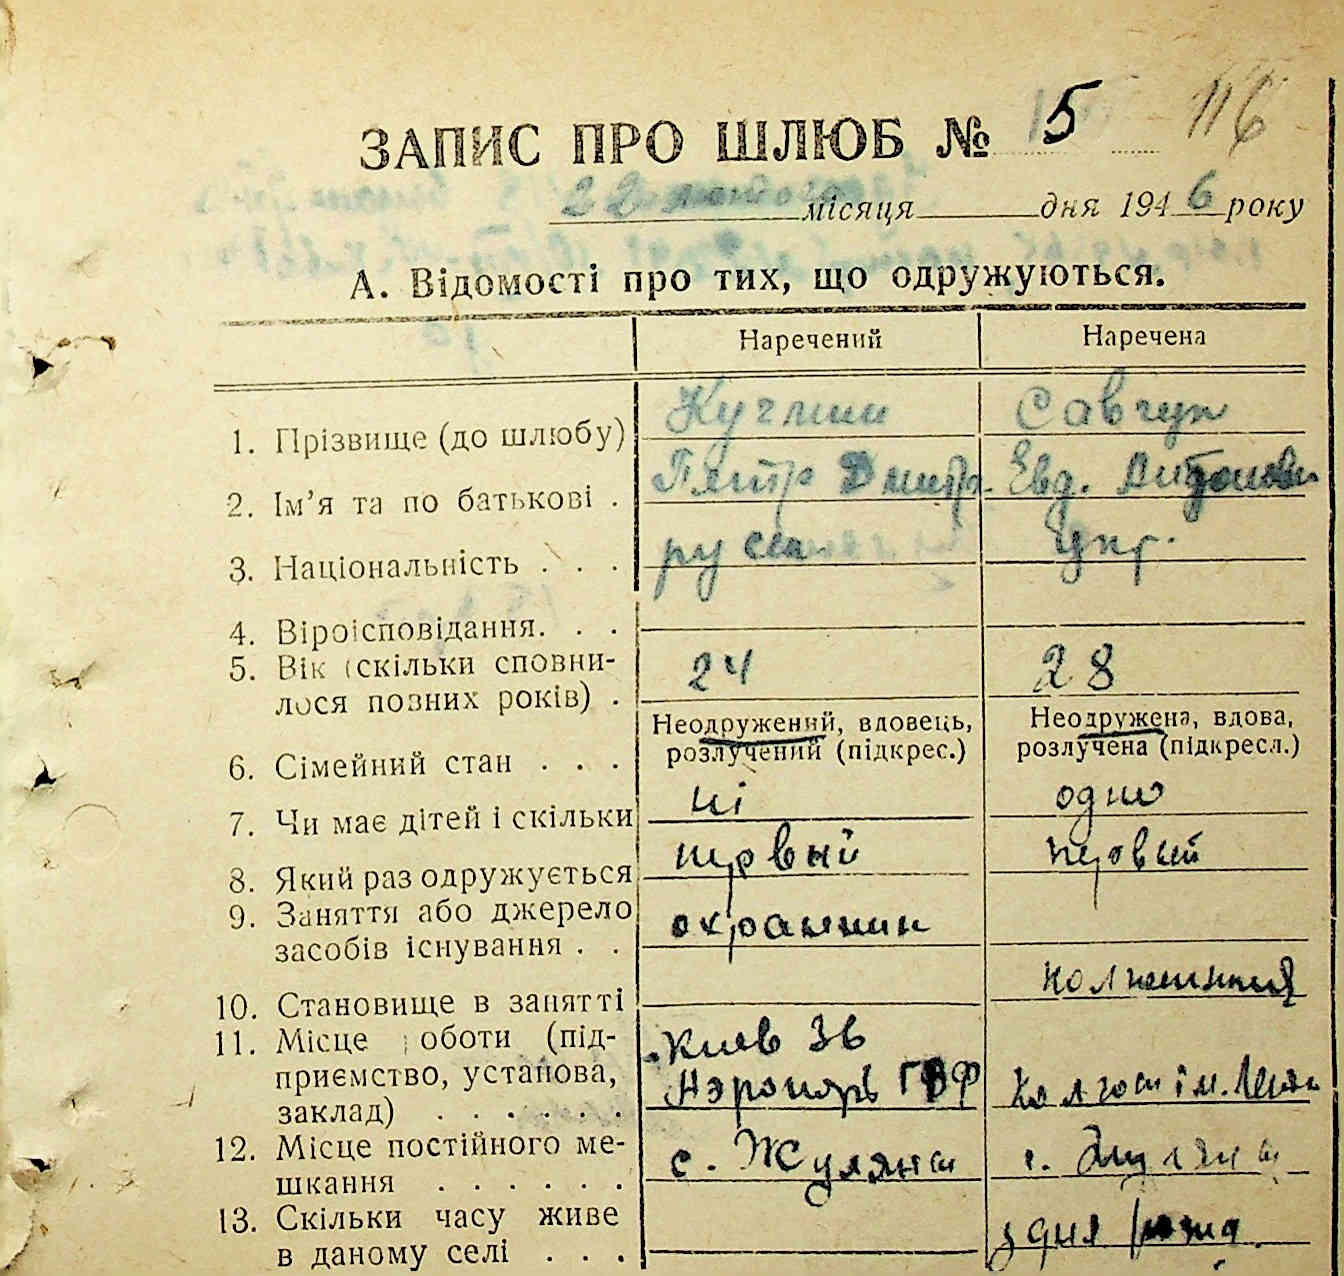 116
ЗАПИС ПРО ШЛЮБ № 5
22 лютого місяця дня 1946 року
А. Відомості про тих, що одружуються.
Наречений Наречена
1. Прізвище (до шлюбу) Савчук
2. Ім'я та по батькові . Петр Дмитр. Евд. Антонови
3. Національність . . . русск. Укр.
4. Віроісповідання. . .
5. Вік (скільки сповни-
лося повних років) . 24 28
Неодружений, вдовець, Неодружена, вдова,
розлучений (підкрес.) розлучена (підкресл.)
6. Сімейний стан . . .
7. Чи має дітей і скільки ні одно
8. Який раз одружується первий первый
9. Заняття або джерело
засобів існування . . охранник
10. Становище в занятті колхозниця
11. Місце роботи (під- Киев 36
приємство, установа, Аэропорт ГВФ Колгосп ім.
заклад) . . . . . .
12. Місце постійного ме-
шкання . . . . . . с. Жуляни с. Жуляни
13. Скільки часу живе
в даному селі . . . з дня рожд.